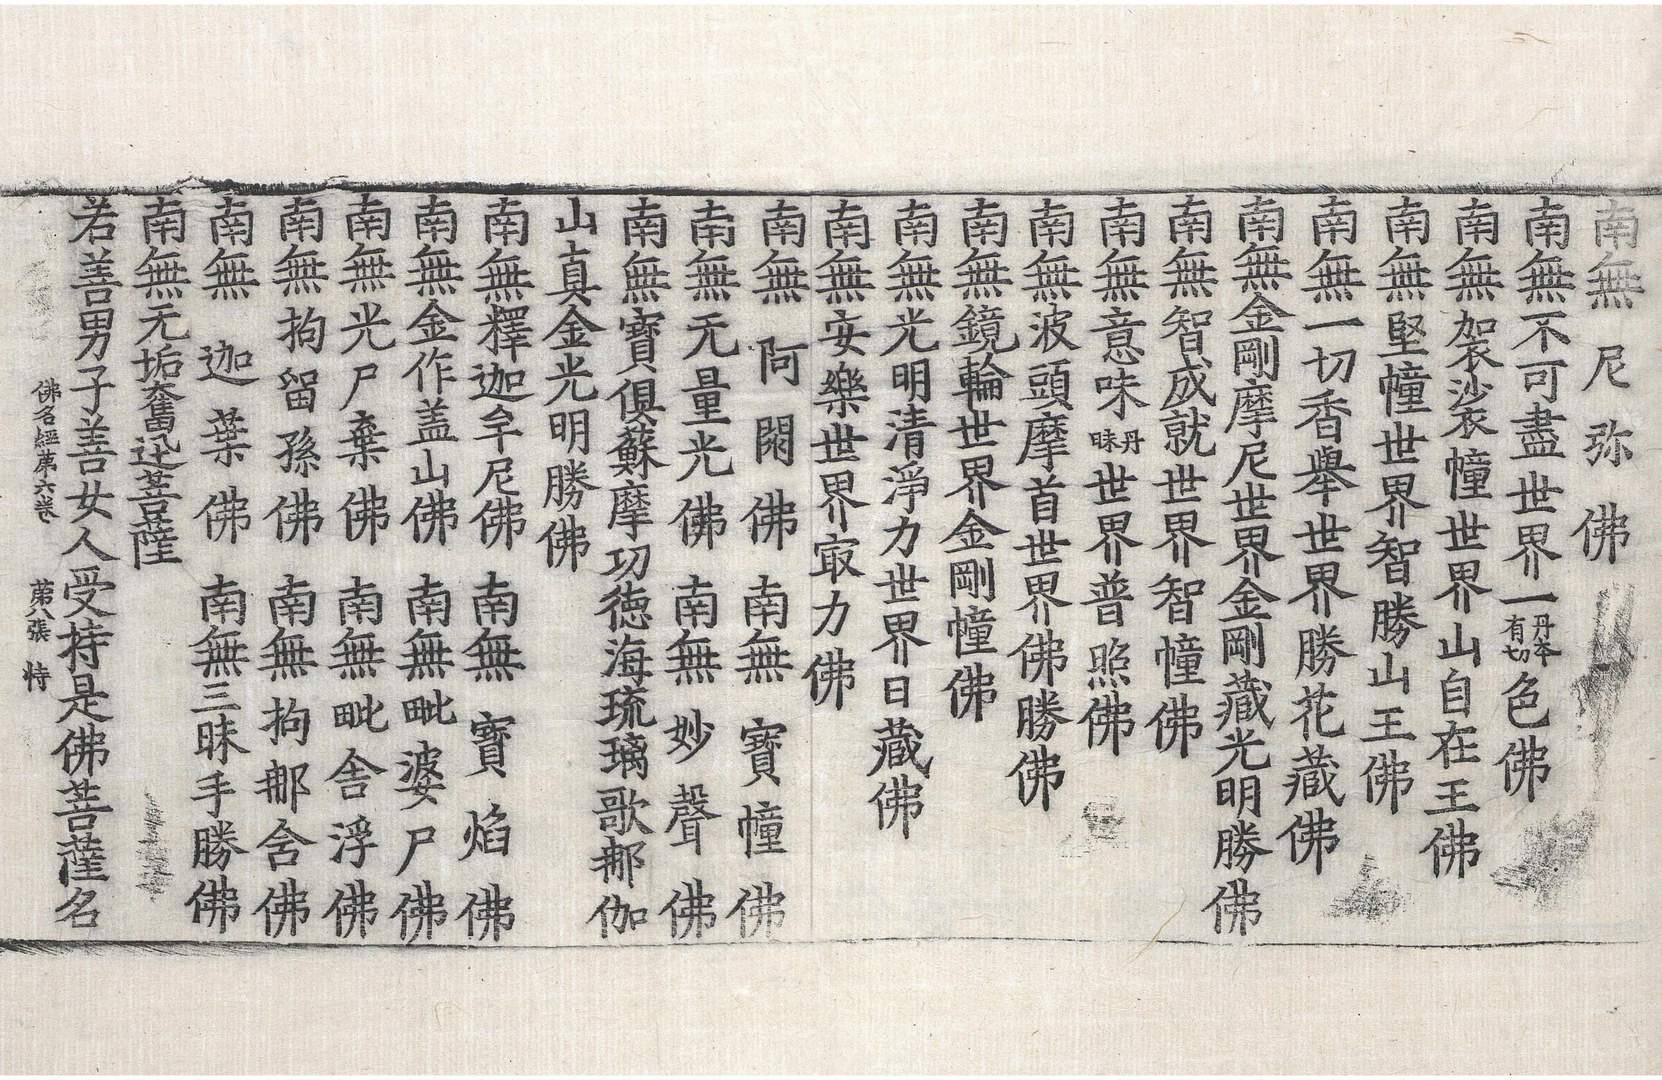 南無尼弥佛
南無不可盡世界一丹本有切色佛
南無袈裟幢世界山自在王佛
南無堅幢世界智勝山王佛
南無一切香舉世界勝花藏佛
南無金剛摩尼世界金剛藏光明勝佛
南無智成就世界智幢佛
南無意味丹昧世界普照佛
南無波頭摩首世界佛勝佛
南無鏡輪世界金剛幢佛
南無光明清淨力世界日藏佛
南無安樂世界㝡力佛
南無阿閦佛 南無寶幢佛
南無无量光佛 南無妙聲佛
南無寶俱蘇摩功德海琉璃歌那伽
山真金光明勝佛
南無釋迦牟尼佛 南無寶焰佛
南無金作盖山佛 南無毗婆尸佛
南無光尸棄佛 南無毗舍浮佛
南無拘留孫佛 南無拘那含佛
南無迦葉佛 南無三昧手勝佛
南無无垢奮迅菩薩
若善男子善女人受持是佛菩薩名
佛名經第六卷 第八張 特